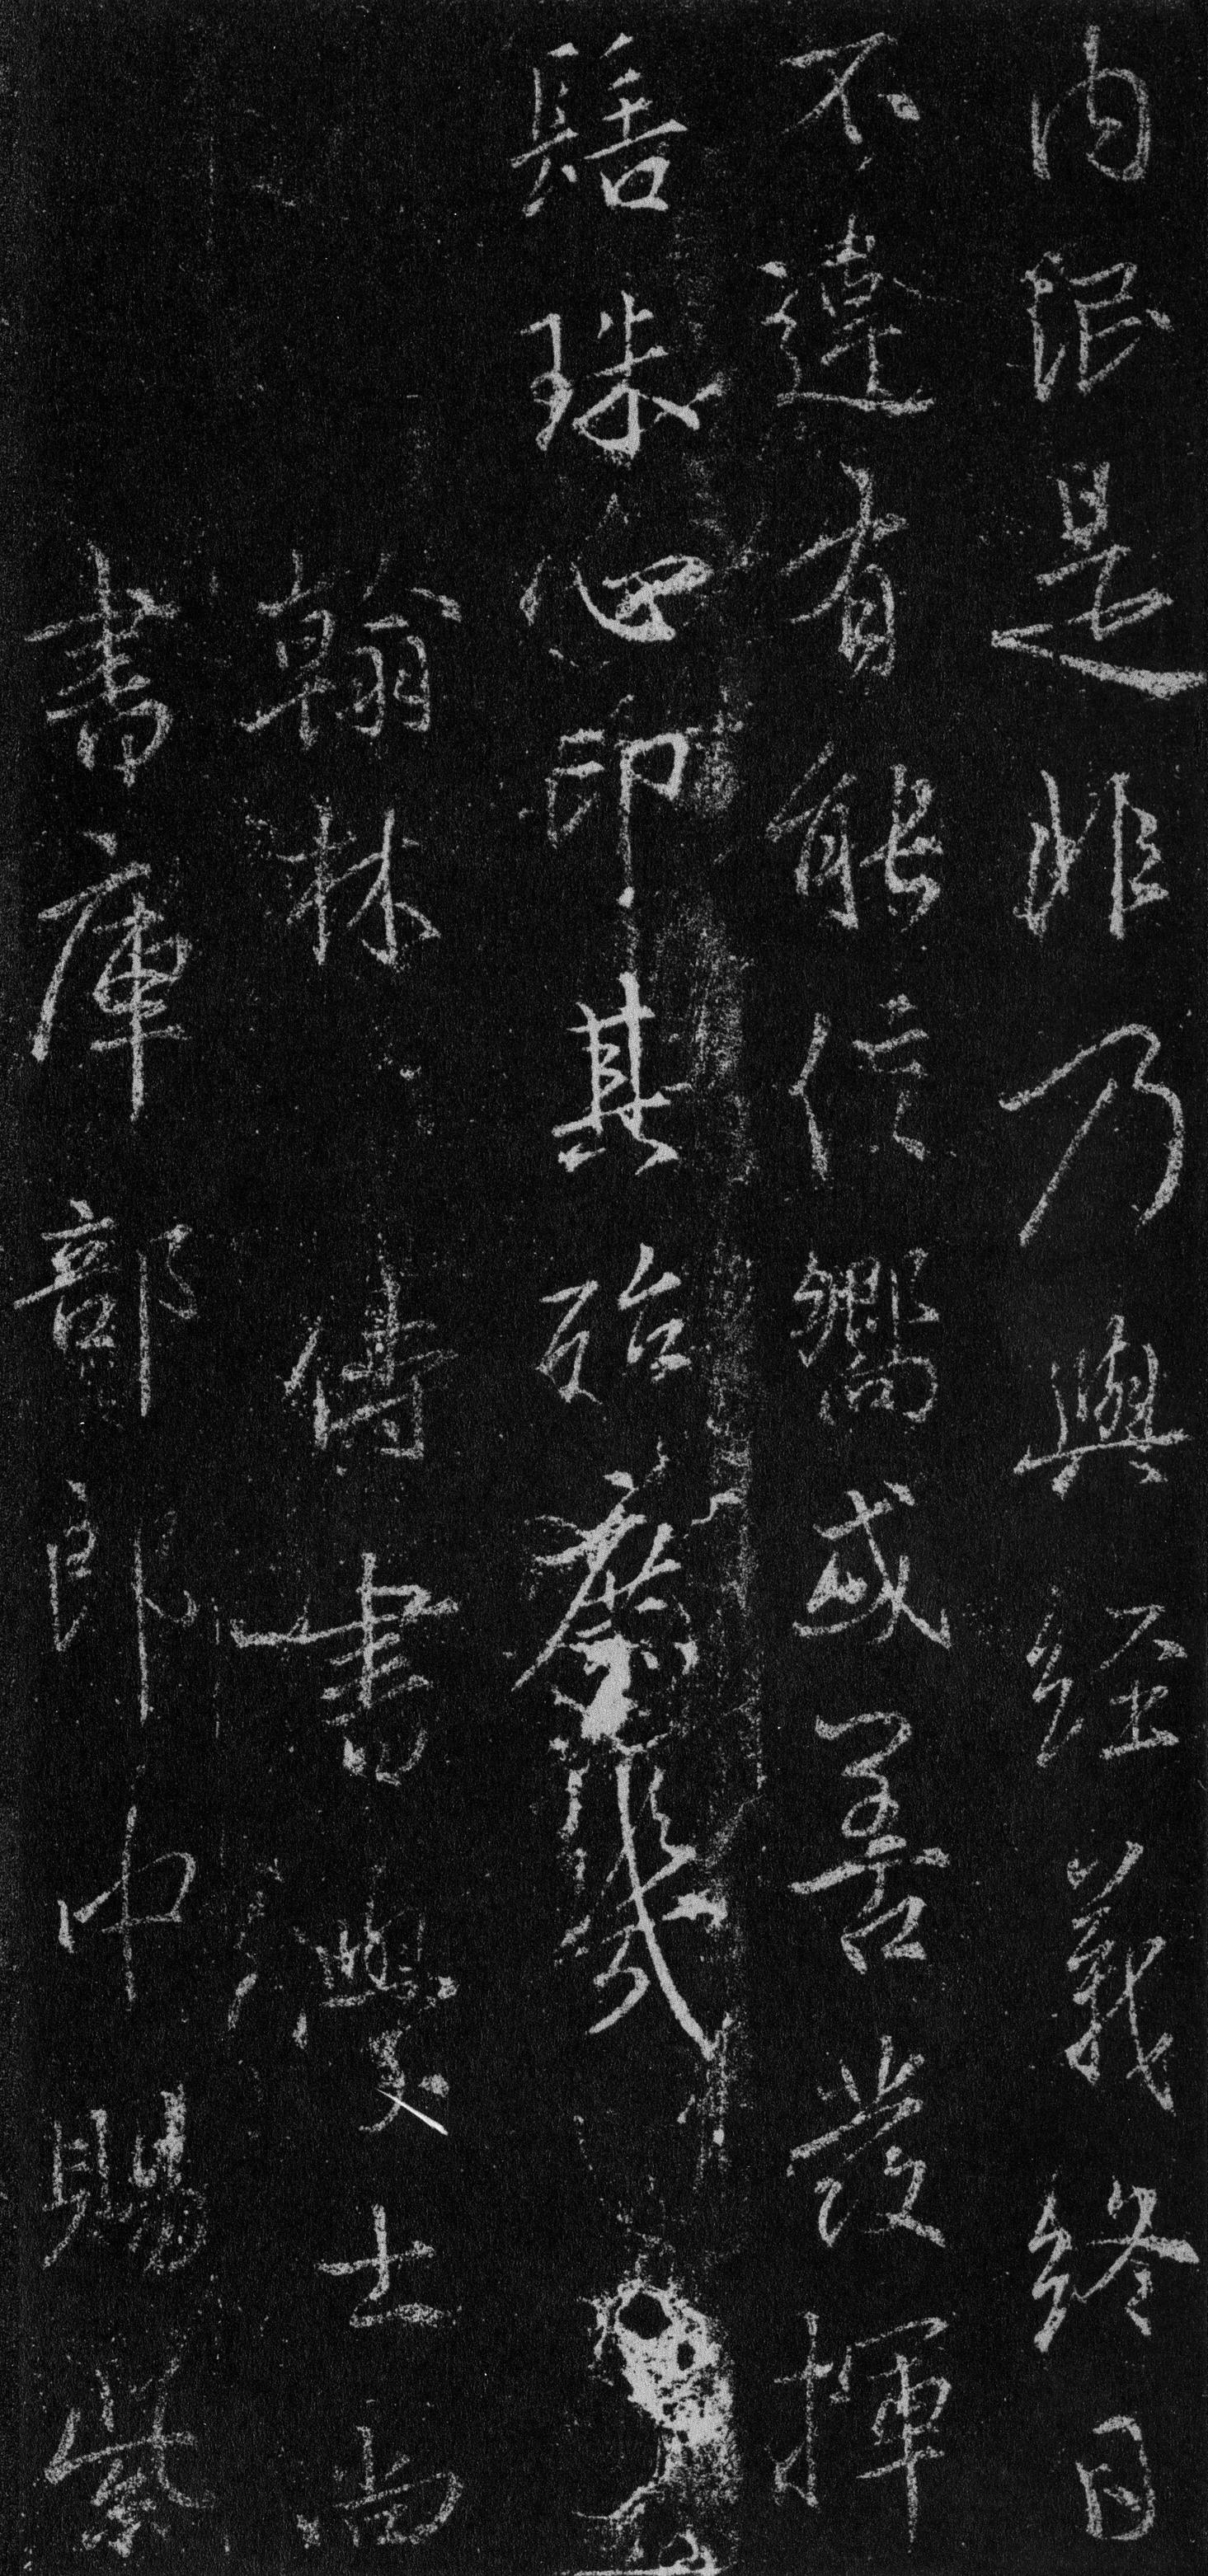 内泯是非乃與經義終日
不違有能信嚮或善發揮
髻珠心印其殆庶幾
翰林待書學士尚
書庫部郎中賜紫